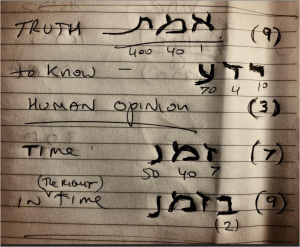 TRUTH אמת (9)
400 40 1
to know – ידע
70 4 10
HUMAN OPINION (3)
TIME זמנ (7)
50 40 7
(THE RIGHT)
IN TIME בזמנ (9)
(2)